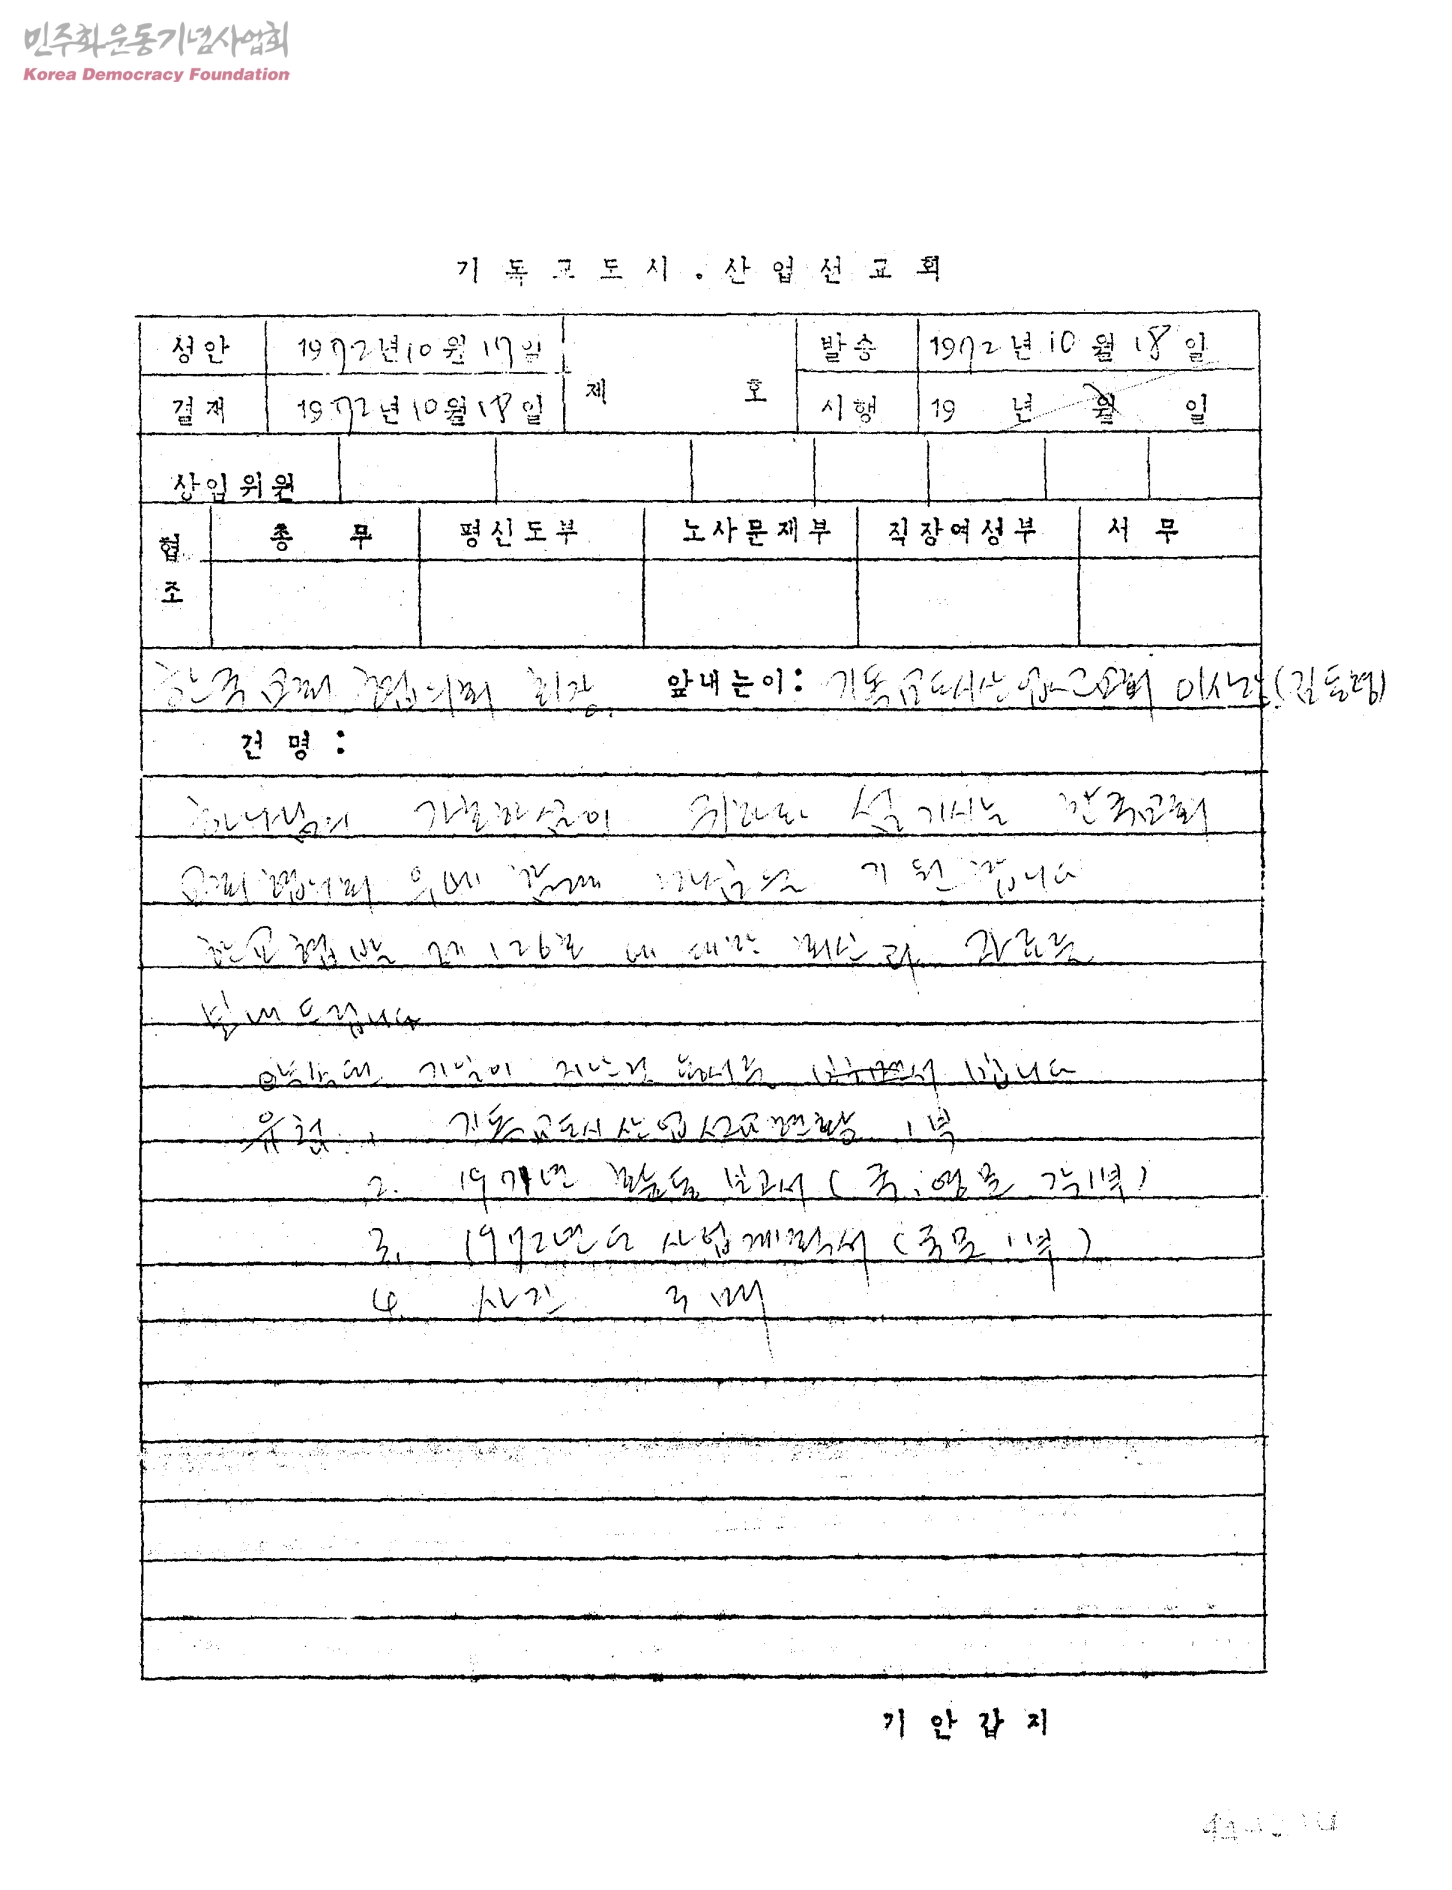 민주화운동기념사업회
Korea Democracy Foundation
기독교도시.산업선교회
성안 1972년10월17일 제 호 발송 1972년10월18일
결재 1972년10월18일 시행 19 년 월 일
상임위원
협조 총무 평신도부 노사문제부 직장여성부 서무
한국교회협의회 회장. 앞내는이: 기독교도시산업선교회 이사장(김동명)
건명:
하나님의 가호하심이 한국교회
위에 함께 기원합니다
한교협발 제126호에 대한 회신과 자료를
보내드립니다
기일이 지난
유첨. 1. 기독교도시산업선교현황 1부
2. 1971년 활동보고서 (국,영문 각1부)
3. 1972년도 사업계획서 (국문 1부)
4. 사진 매
기안갑지